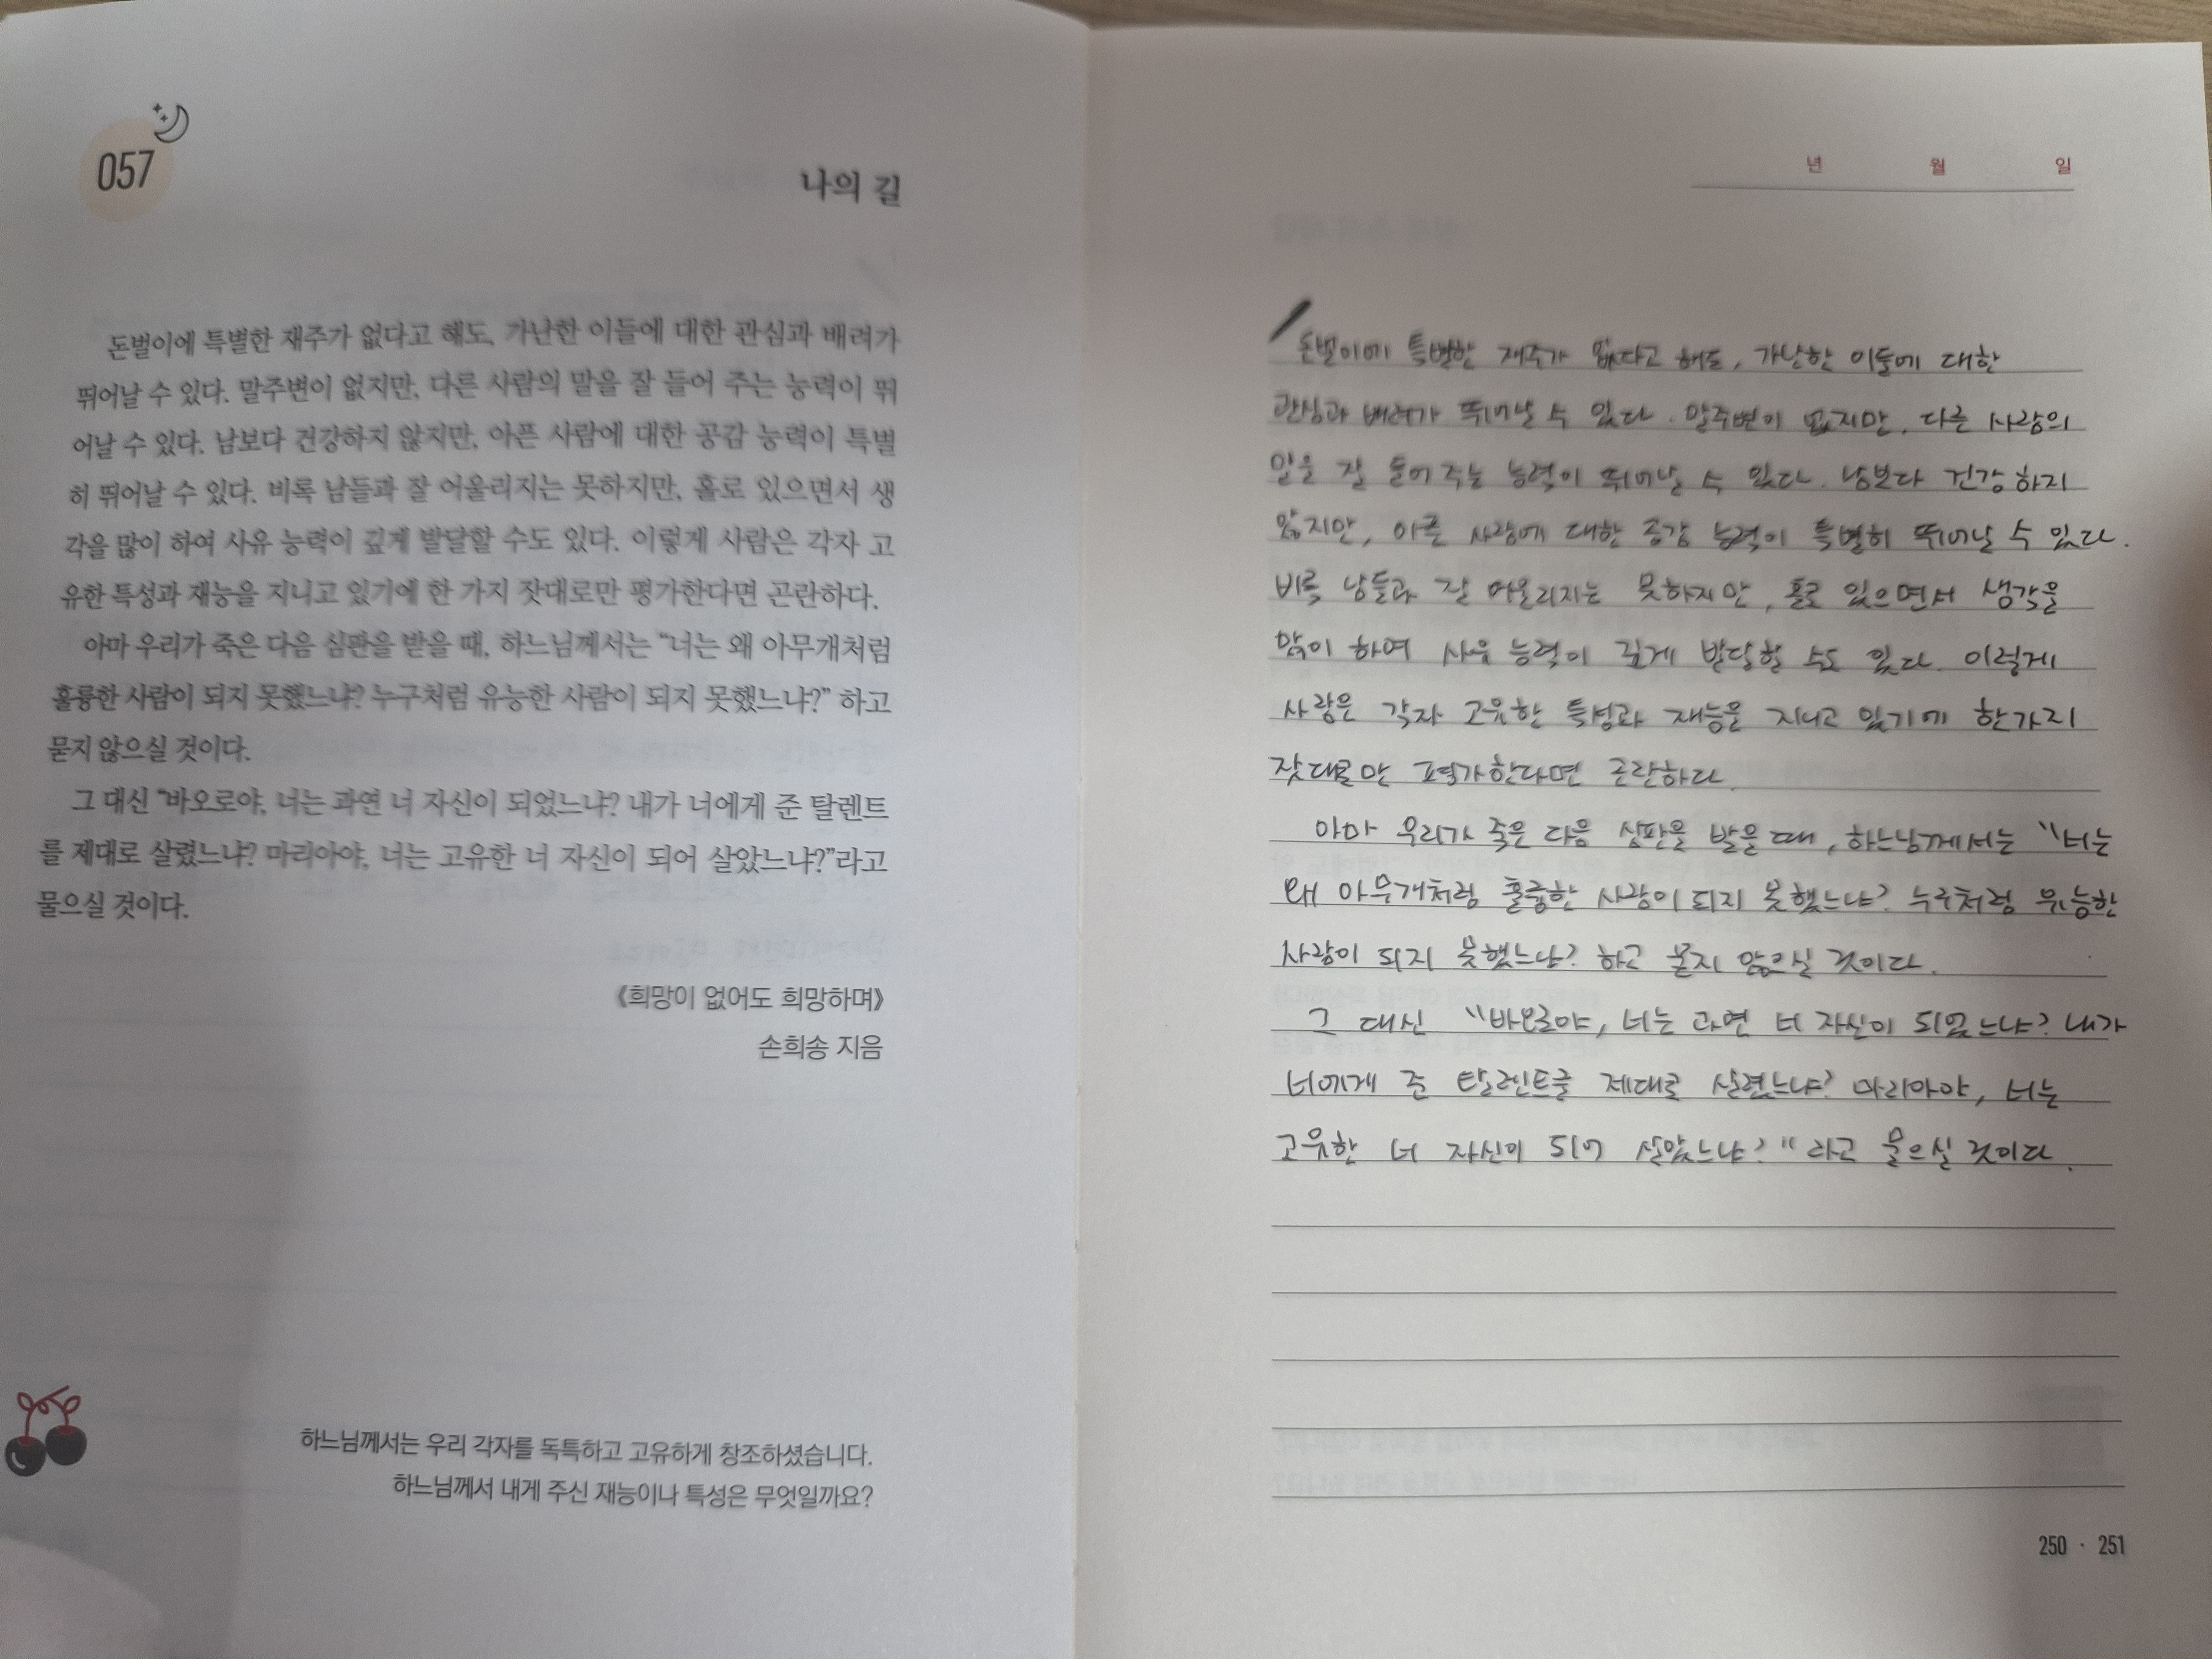 057
나의 길
돈벌이에 특별한 재주가 없다고 해도, 가난한 이들에 대한 관심과 배려가
뛰어날 수 있다. 말주변이 없지만, 다른 사람의 말을 잘 들어 주는 능력이 뛰
어날 수 있다. 남보다 건강하지 않지만, 아픈 사람에 대한 공감 능력이 특별
히 뛰어날 수 있다. 비록 남들과 잘 어울리지는 못하지만, 홀로 있으면서 생
각을 많이 하여 사유 능력이 깊게 발달할 수도 있다. 이렇게 사람은 각자 고
유한 특성과 재능을 지니고 있기에 한 가지 잣대로만 평가한다면 곤란하다.
아마 우리가 죽은 다음 심판을 받을 때, 하느님께서는 “너는 왜 아무개처럼
훌륭한 사람이 되지 못했느냐? 누구처럼 유능한 사람이 되지 못했느냐?” 하고
묻지 않으실 것이다.
그 대신 “바오로야, 너는 과연 너 자신이 되었느냐? 내가 너에게 준 탈렌트
를 제대로 살렸느냐? 마리아야, 너는 고유한 너 자신이 되어 살았느냐?”라고
물으실 것이다.
《희망이 없어도 희망하며》
손희송 지음
하느님께서는 우리 각자를 독특하고 고유하게 창조하셨습니다.
하느님께서 내게 주신 재능이나 특성은 무엇일까요?
년 월 일
돈벌이에 특별한 재주가 없다고 해도, 가난한 이들에 대한
관심과 배려가 뛰어날 수 있다. 말주변이 없지만, 다른 사람의
말을 잘 들어 주는 능력이 뛰어날 수 있다. 남보다 건강하지
않지만, 아픈 사람에 대한 공감 능력이 특별히 뛰어날 수 있다.
비록 남들과 잘 어울리지는 못하지만, 홀로 있으면서 생각을
많이 하여 사유 능력이 깊게 발달할 수도 있다. 이렇게
사람은 각자 고유한 특성과 재능을 지니고 있기에 한가지
잣대로만 평가한다면 곤란하다.
아마 우리가 죽은 다음 심판을 받을 때, 하느님께서는 “너는
왜 아무개처럼 훌륭한 사람이 되지 못했느냐? 누구처럼 유능한
사람이 되지 못했느냐? 하고 묻지 않으실 것이다.
그 대신 “바오로야, 너는 과연 너 자신이 되었느냐? 내가
너에게 준 탈렌트를 제대로 살렸느냐? 마리아야, 너는
고유한 너 자신이 되어 살았느냐?“라고 물으실 것이다.
250 · 251